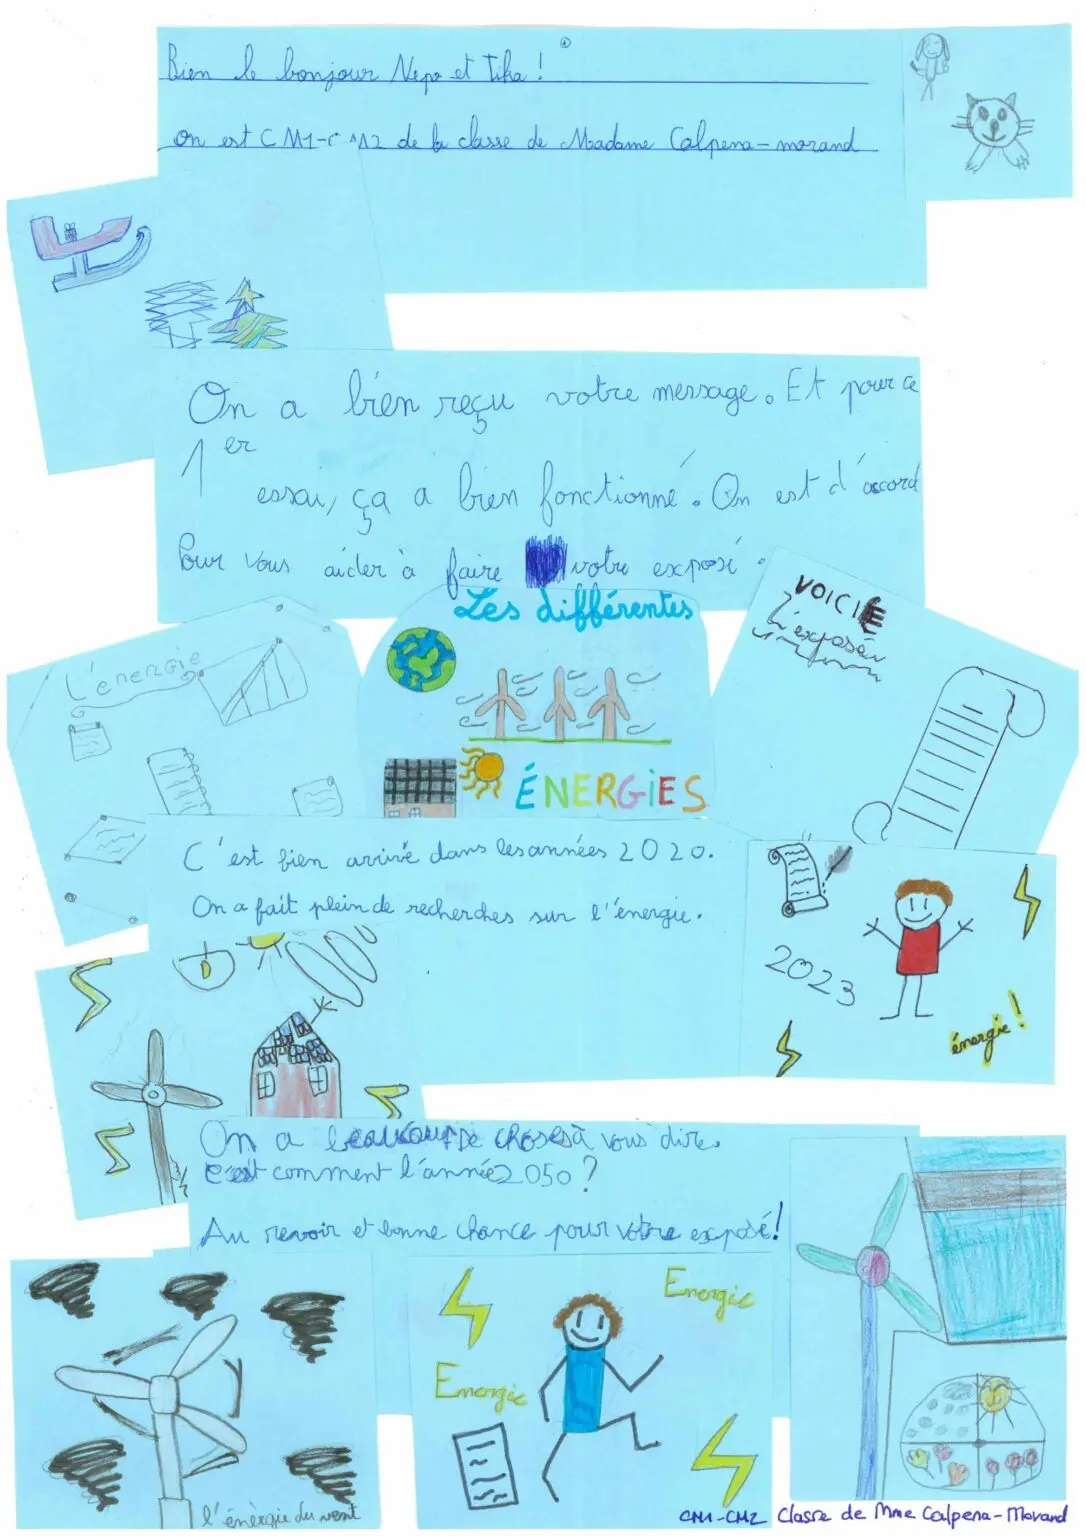 Bien le bonjour Nepo et Tika !
on est CM1-CM2 de la classe de Madame Calpena-morand
On a bien reçu votre message. Et pour ce
1er
essai, ça a bien fonctionné. On est d'accord
Pour vous aider à faire votre exposé.
Les différentes
ÉNERGIES
L'énergie
VOICIE
L'exposée
C'est bien arrivé dans les années 2020.
On a fait plein de recherches sur l'énergie.
2023
énergie !
On a beaucoup De choses à vous dire.
C'est comment l'année 2050 ?
Au revoir et bonne chance pour votre exposé!
l'énèrgie du vent
Energie
Energie
CM1-CM2 Classe de Mme Calpena-Morand